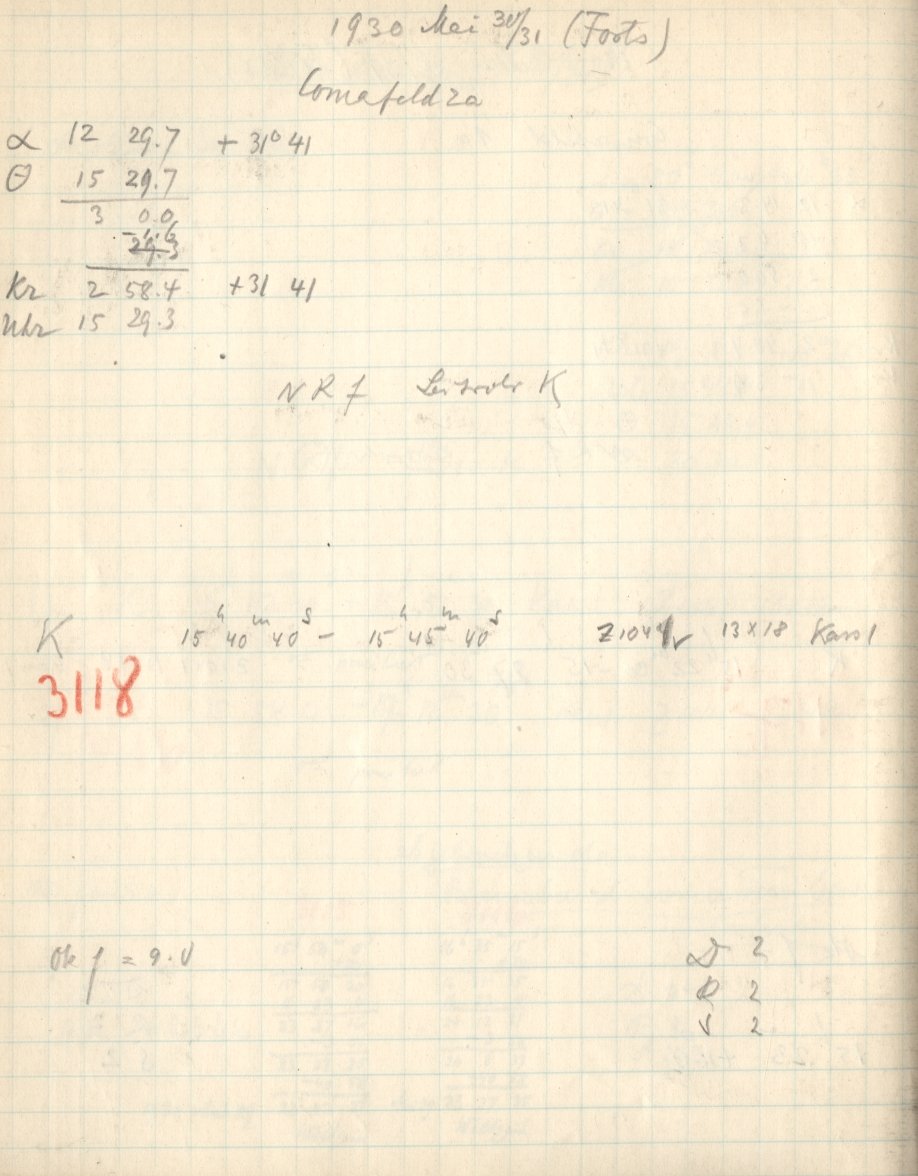 1930 Mai 30/31 (Forts)
Comafeld 2a
α 12 29.7 + 31° 41
Θ 15 29.7
3 0.0
-1.6
29.3
Kr 2 58.4 +31 41
Uhr 15 29.3
NRf Leitrohr K
K 15h 40m 40s – 15h 45m 40s Z1044 13x18 Kass 1
3118
Ok f = 9.0
D 2
R 2
S 2